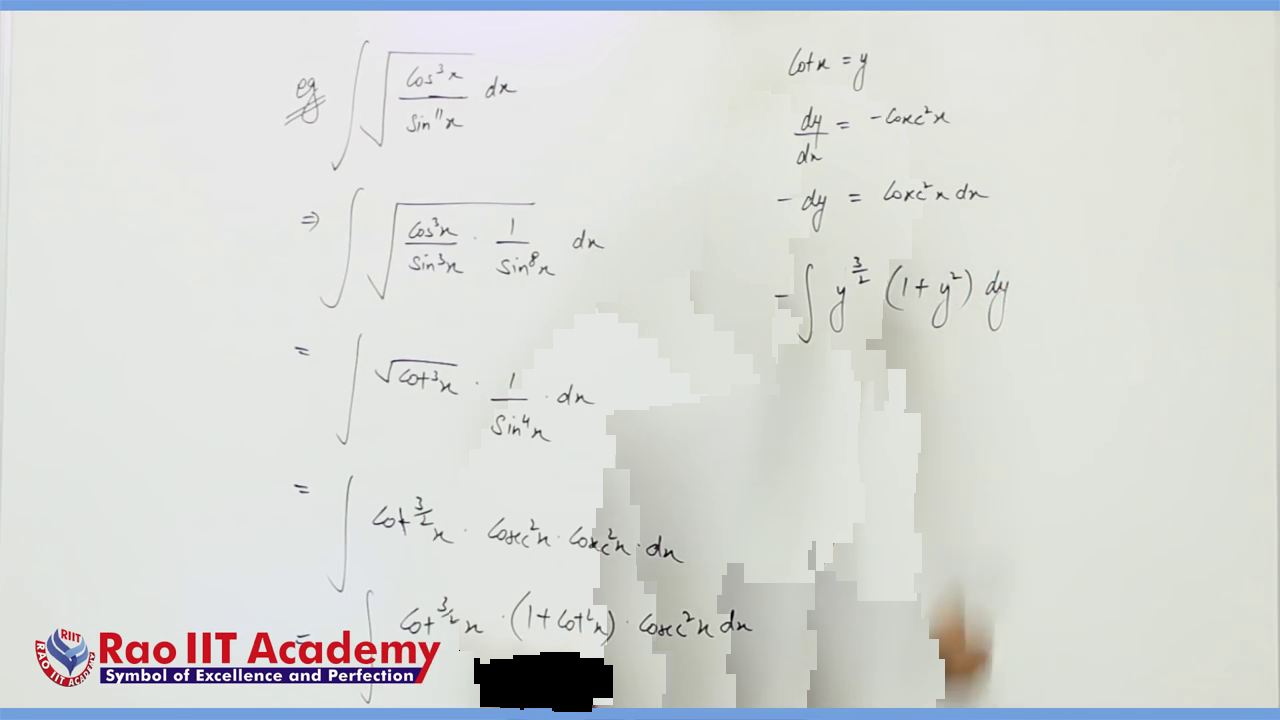 eg ∫ √(Cos³x / Sin¹¹x) dx
⇒ ∫ √(Cos³x / Sin³x · 1 / Sin⁸x) dx
= ∫ √Cot³x · 1 / Sin⁴x · dx
= ∫ Cot^(3/2) x · Cosec²x · Cosec²x · dx
= ∫ Cot^(3/2) x · (1 + Cot²x) · Cosec²x dx
Cotx = y
dy/dx = - Cosec²x
- dy = Cosec²x dx
- ∫ y^(3/2) (1 + y²) dy
RIIT
RAO IIT ACADEMY
Rao IIT Academy
Symbol of Excellence and Perfection